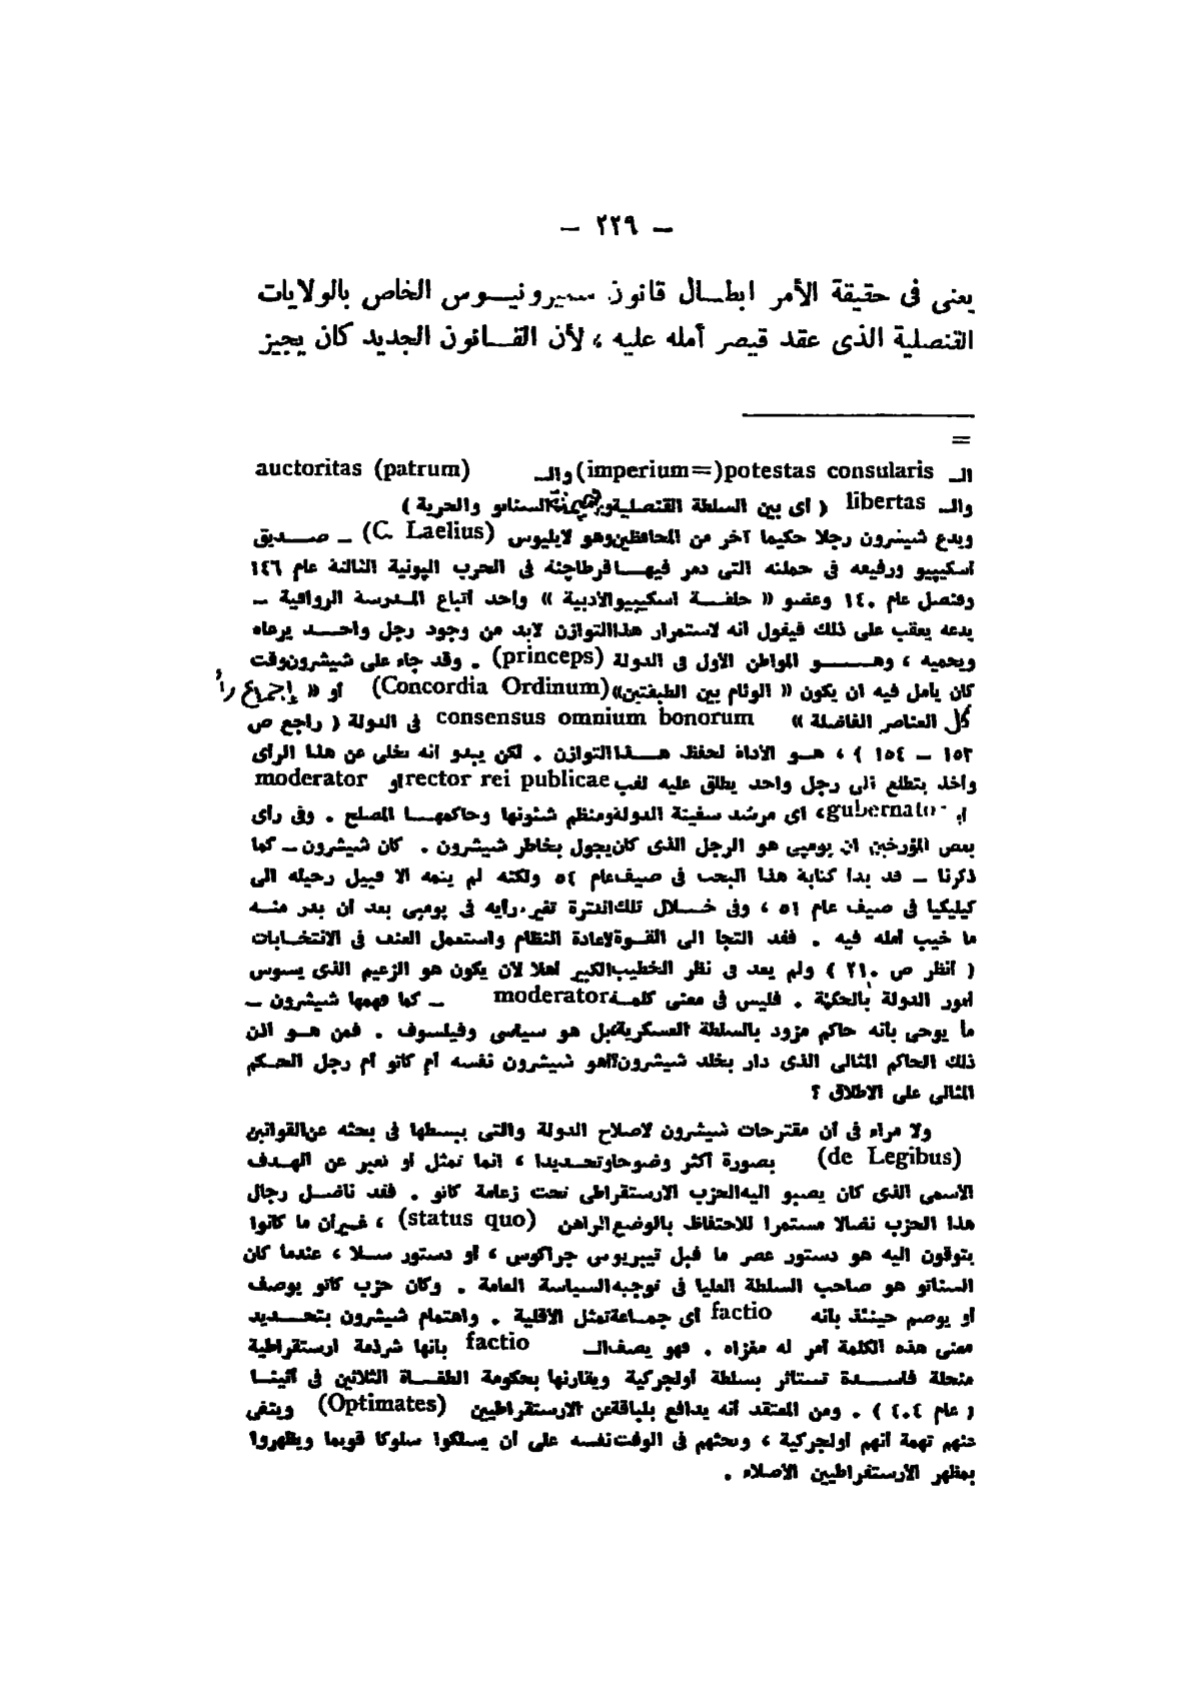 — ٢٢٩ —
يعنى فى حقيقة الأمر ابطـال قانون سمبرونيـوس الخاص بالولايات
القنصلية الذى عقد قيصر أمله عليه ، لأن القـانون الجديد كان يجيز
=
الـ potestas consularis (=imperium) والـ auctoritas (patrum)
والـ libertas ( أى بين السلطة القنصلية وهيبة السناتو والحرية )
ويدع شيشرون رجلا حكيما آخر من المحافظين وهو لايليوس (C. Laelius) ــ صـديق
اسكيبيو ورفيقه فى حملته التى دمر فيهـا قرطاجنة فى الحرب البونية الثالثة عام ١٤٦
وقنصل عام ١٤٠ وعضو « حلقـة اسكيبيو الأدبية » وأحد أتباع المدرسة الرواقية ــ
يدعه يعقب على ذلك فيقول أنه لاستمرار هذا التوازن لابد من وجود رجل واحـد يرعاه
ويحميه ، وهــو المواطن الأول فى الدولة (princeps) . وقد جاء على شيشرون وقت
كان يأمل فيه أن يكون « الوئام بين الطبقتين » (Concordia Ordinum) أو « إجماع رأى
كل العناصر الفاضلة » consensus omnium bonorum فى الدولة ( راجع ص
١٥٣ ــ ١٥٤ ) ، هـو الأداة لحفظ هـذا التوازن . لكن يبدو أنه تخلى عن هذا الرأى
وأخذ يتطلع الى رجل واحد يطلق عليه لقب rector rei publicae أو moderator
أو gubernator ، أى مرشد سفينة الدولة ومنظم شئونها وحاكمهـا المصلح . وفى رأى
بعض المؤرخين أن بومبى هو الرجل الذى كان يجول بخاطر شيشرون . كان شيشرون ــ كما
ذكرنا ــ قد بدأ كتابة هذا البحث فى صيف عام ٥٤ ولكنه لم يتمه الا قبيل رحيله الى
كيليكيا فى صيف عام ٥١ ، وفى خـلال تلك الفترة تغير رأيه فى بومبى بعد أن بدر منـه
ما خيب أمله فيه . فقد التجأ الى القـوة لاعادة النظام واستعمل العنف فى الانتخـابات
( أنظر ص ٢١٠ ) ولم يعد فى نظر الخطيب الكبير أهلا لأن يكون هو الزعيم الذى يسوس
أمور الدولة بالحكمة . فليس فى معنى كلمـة moderator ــ كما فهمها شيشرون ــ
ما يوحى بأنه حاكم مزود بالسلطة العسكرية بل هو سياسى وفيلسوف . فمن هـو اذن
ذلك الحاكم المثالى الذى دار بخلد شيشرون؟ أهو شيشرون نفسه أم كاتو أم رجل الحـكم
المثالى على الاطلاق ؟
ولا مراء فى أن مقترحات شيشرون لاصلاح الدولة والتى يبسطها فى بحثه عن القوانين
(de Legibus) بصورة أكثر وضوحا وتحـديدا ، انما تمثل أو تعبر عن الهـدف
الأسمى الذى كان يصبو اليه الحزب الارستقراطى تحت زعامة كاتو . فقد ناضـل رجال
هذا الحزب نضالا مستمرا للاحتفاظ بالوضع الراهن (status quo) ، غـير أن ما كانوا
يتوقون اليه هو دستور عصر ما قبل تيبريوس جراكوس ، أو دستور سـلا ، عندما كان
السناتو هو صاحب السلطة العليا فى توجيه السياسة العامة . وكان حزب كاتو يوصف
أو يوصم حينئذ بأنه factio أى جمـاعة تمثل الأقلية . واهتمام شيشرون بتحـديد
معنى هذه الكلمة أمر له مغزاه . فهو يصف الـ factio بأنها شرذمة ارستقراطية
منحلة فاسـدة تستأثر بسلطة أولجركية ويقارنها بحكومة الطغـاة الثلاثين فى أثينـا
( عام ٤٠٤ ) . ومن المعتقد أنه يدافع بلباقة عن الارستقراطيين (Optimates) وينفى
عنهم تهمة أنهم أولجركية ، ويحثهم فى الوقت نفسه على أن يسلكوا سلوكا قويما ويظهروا
بمظهر الأرستقراطيين الأصلاء .